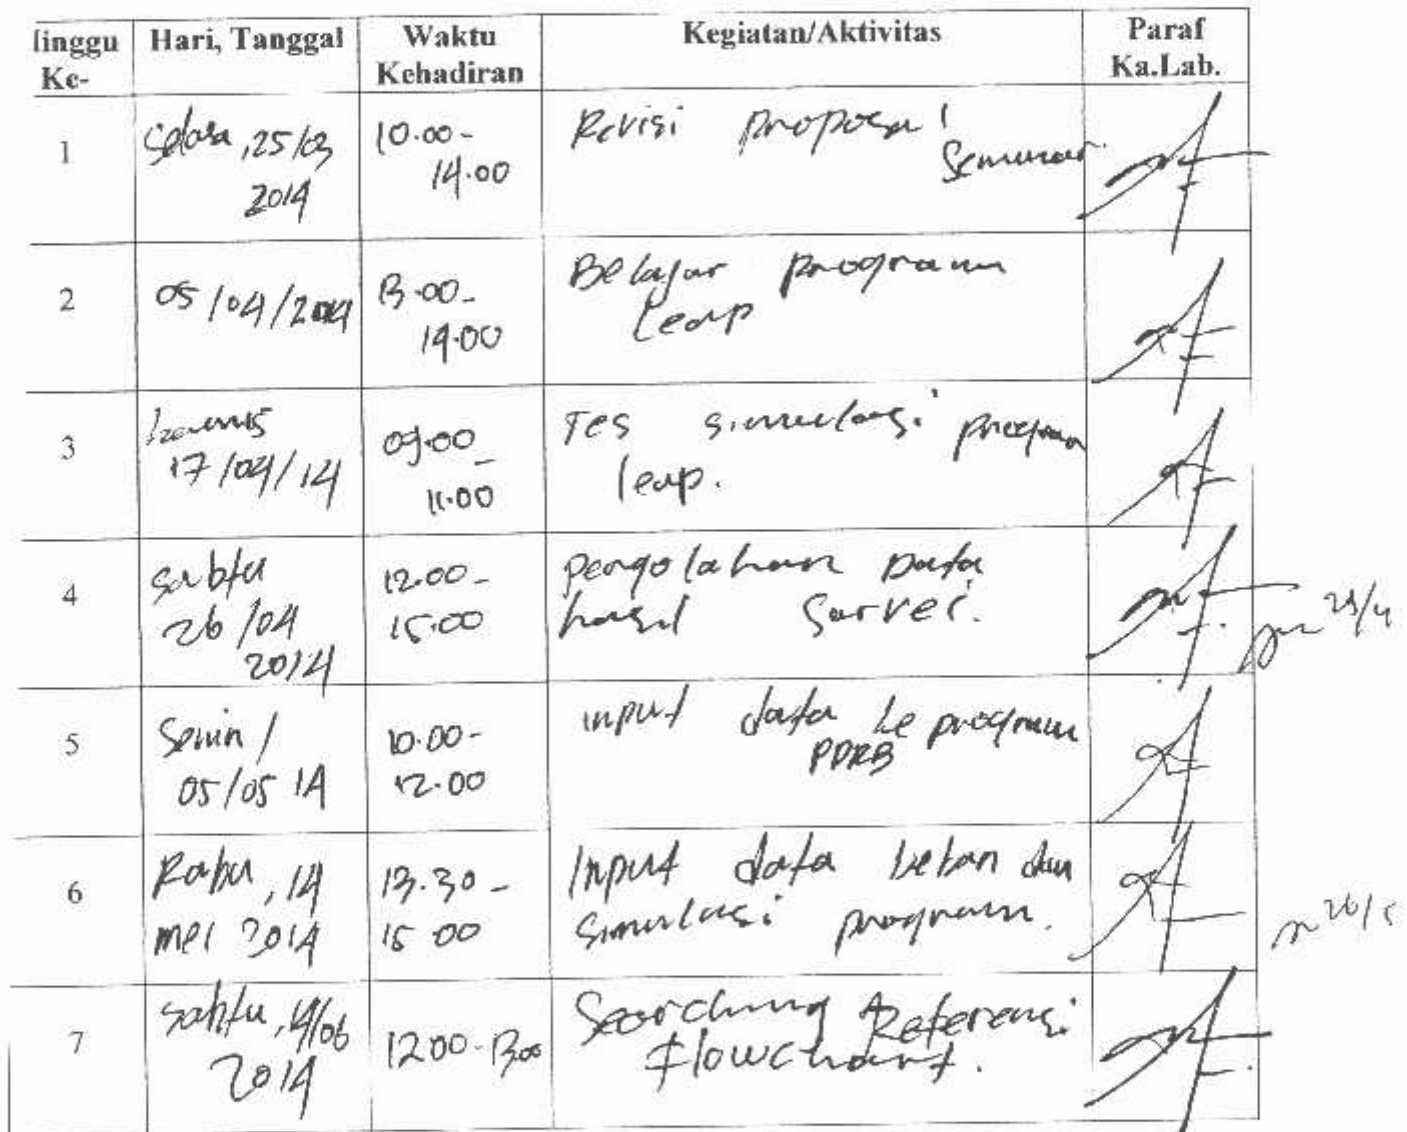 linggu Ke- Hari, Tanggal Waktu Kehadiran Kegiatan/Aktivitas Paraf Ka.Lab.
1 Selasa, 25/03 2014 10.00 - 14.00 Revisi proposal Seminar
2 05/04/2014 13.00 - 14.00 Belajar program Leap
3 kamis 17/04/14 09.00 - 11.00 Tes simulasi program leap.
4 sabtu 26/04 2014 12.00 - 15.00 pengolahan data hasil survei.
29/4
5 Senin / 05/05 14 10.00 - 12.00 input data ke program PDRB
6 Rabu, 14 mei 2014 13.30 - 15 00 Input data beban dan simulasi program.
7 sabtu, 14/06 2014 12 00 - 13.00 Searching Referensi flowchart.